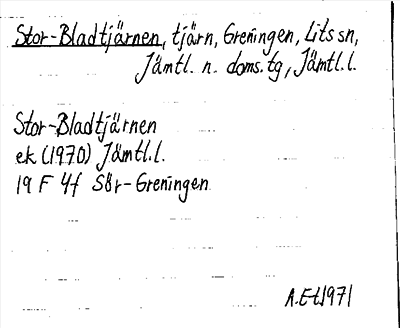 Stor-Bladtjärnen, tjärn, Greningen, Lits sn,
Jämtl. n. doms.tg, Jämtl.l.
Stor-Bladtjärnen
ek (1970) Jämtl.l.
19 F 4f Sör-Greningen
A.E-t 1971